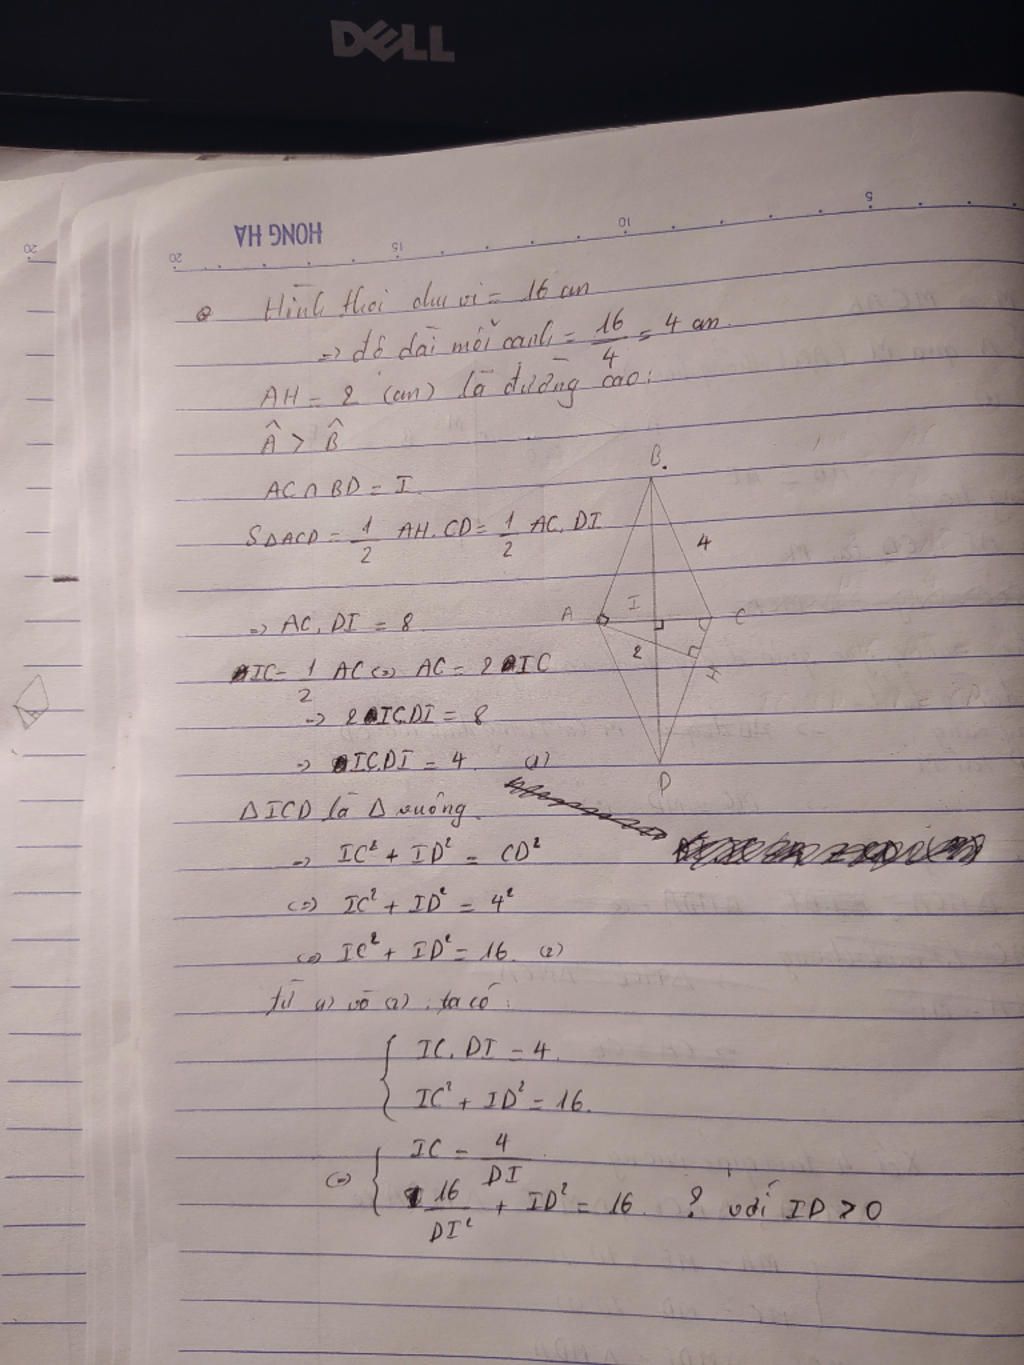 DELL
HONG HA
20 15 10 5
20
Hình thoi chu vi = 16 cm
=> độ dài mỗi cạnh = 16/4 = 4 cm.
AH = 2 (cm) là đường cao.
Â > B̂
AC ∩ BD = I.
SΔACD = 1/2 AH. CD = 1/2 AC. DI
=> AC. DI = 8
IC = 1/2 AC <=> AC = 2 IC
=> 2 IC.DI = 8
=> IC.DI = 4. (1)
ΔICD là Δ vuông.
=> IC² + ID² = CD²
<=> IC² + ID² = 4²
<=> IC² + ID² = 16. (2)
từ (1) và (2). ta có:
{ IC. DI = 4.
IC² + ID² = 16.
<=> { IC = 4/DI
16/DI² + ID² = 16. ? với ID > 0
B.
4
A I C
2 H
D